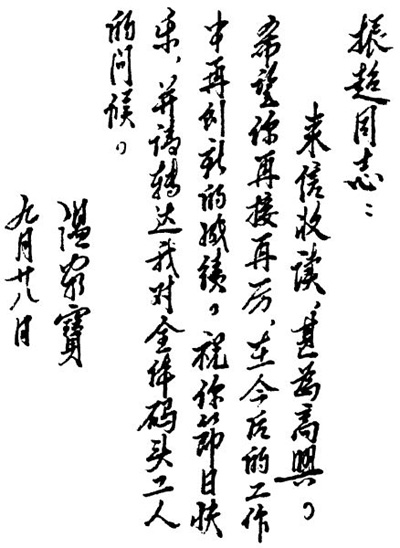 振超同志：
来信收读，甚为高興。
希望你再接再厉，在今后的工作
中再创新的成绩。祝你节日快
乐，并请转达我对全体码头工人
的问候。
温家寶
九月廿八日